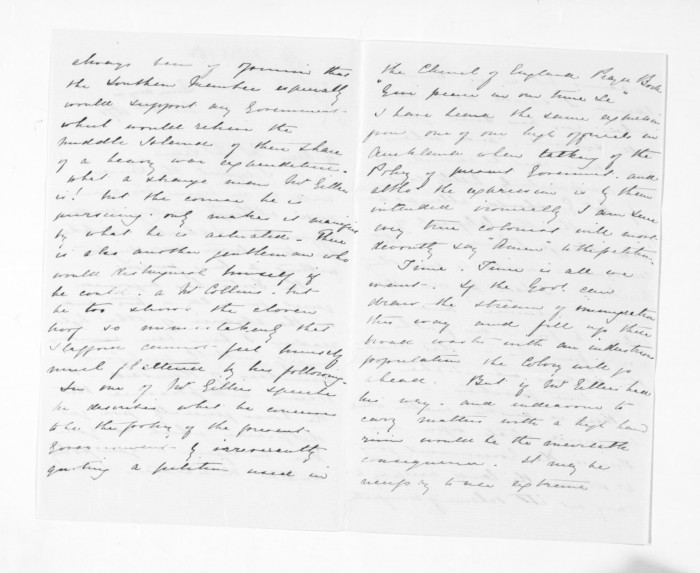 always been of opinion that
the Southern Member especially
would support any Government
which would relieve the
Middle Island of their share
of a heavy war expenditure.
What a strange man Mr Gillies
is! but the course he is
pursuing only makes it manifest
by what he is actuated. There
is also another gentleman who
would distinguish himself if
he could. a Mr Collins. but
he too shows the cloven
hoof so unmistakeably that
Stafford cannot feel himself
much flattered by his following.
In one of Mr Gillies speeches
he describes what he conceives
to be the policy of the present
Government by irreverently
quoting a petition used in
the Church of England Prayer Book
"Give peace in our time &c"
I have heard the same expression
from one of our high officials in
Auckland when talking of the
Policy of present Government. and
altho the expression is by them
intended ironically I am sure
every true colonist will most
devoutly say "Amen" to the petition.
Time. Time is all we
want. If the Govt. can
draw the stream of immigration
this way and fill up these
broad wastes with an industrious
population the Colony will go
ahead. But if Mr Gillies had
his way. and endeavour to
carry matters with a high hand
ruin would be the inevitable
consequence. It may be
necessy to use extreme